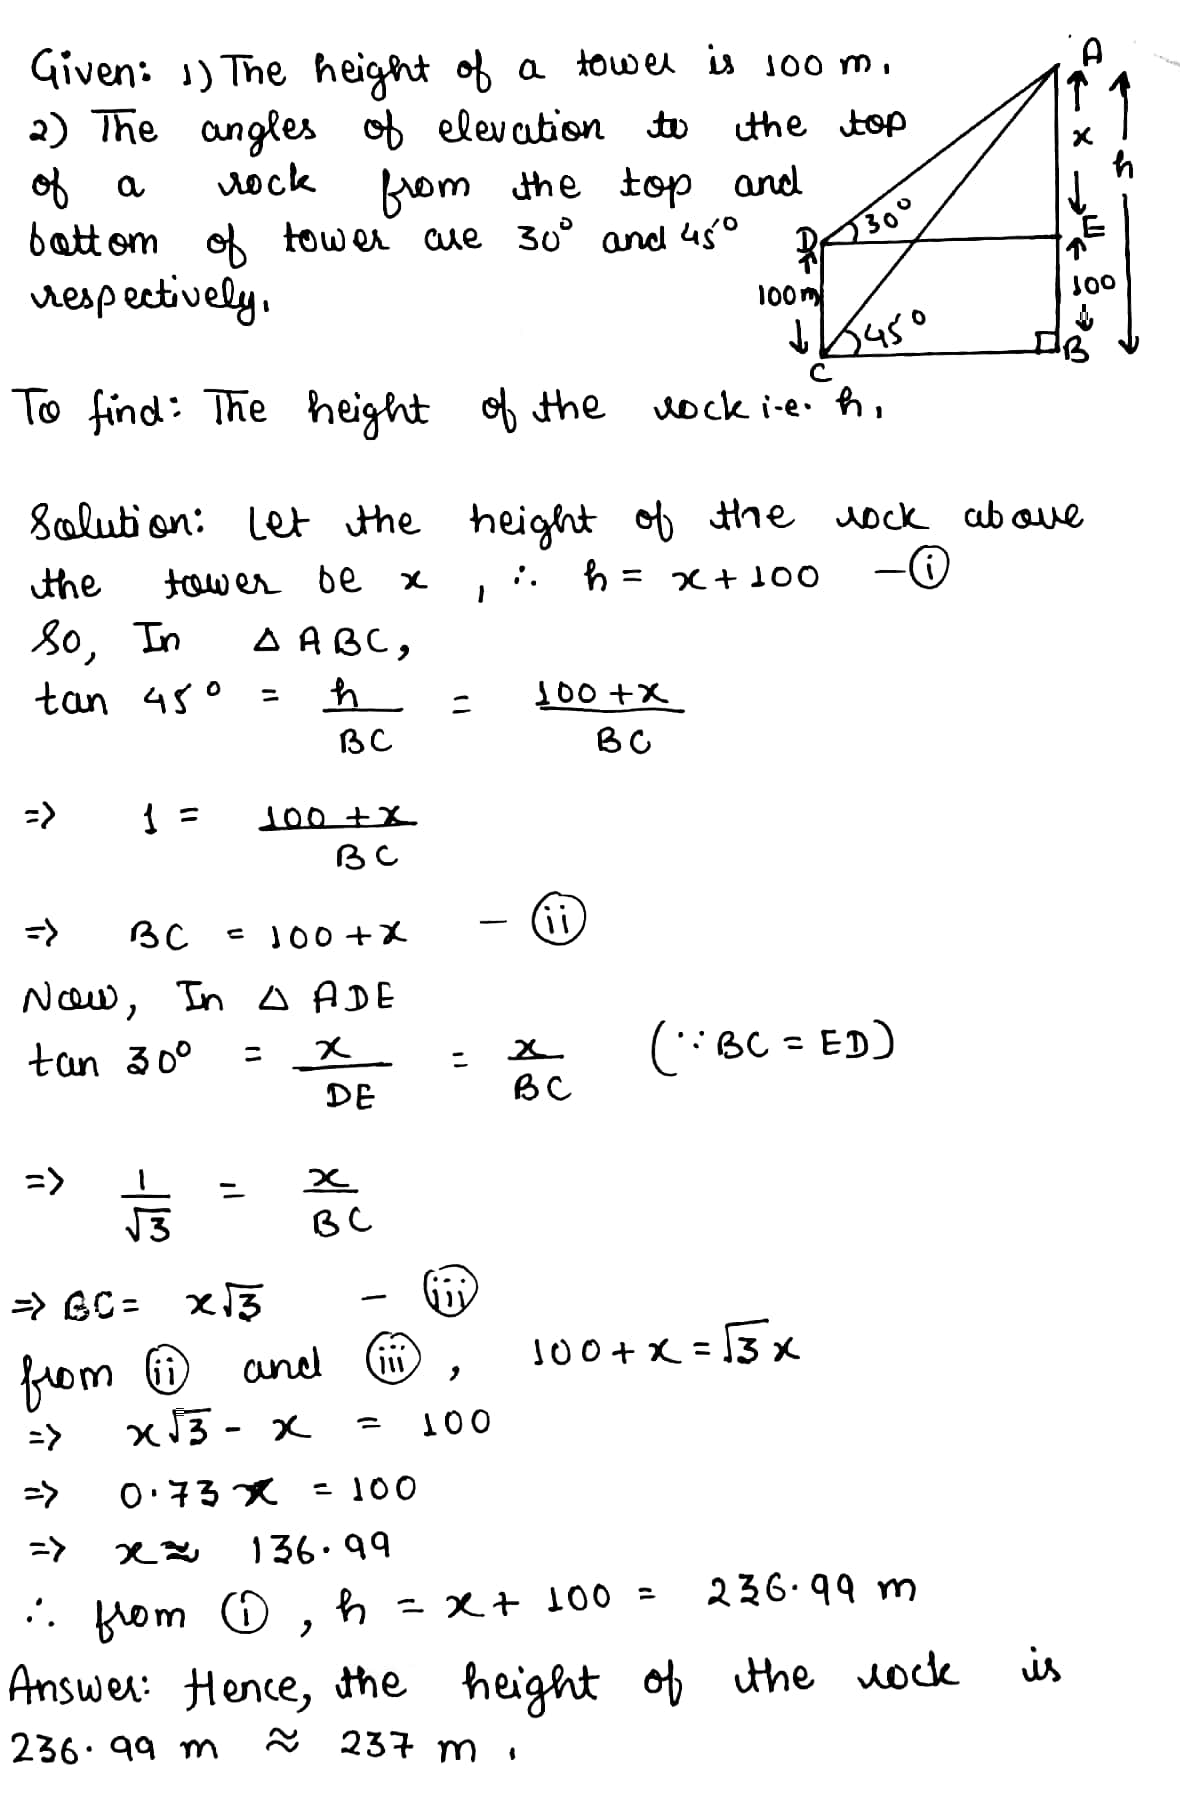 Given: 1) The height of a tower is 100 m.
2) The angles of elevation to the top
of a rock from the top and
bottom of tower are 30° and 45°
respectively.
A
x
h
E
100
B
D
30°
100m
45°
C
To find: The height of the rock i.e. h.
Solution: Let the height of the rock above
the tower be x , ∴ h = x + 100 - (i)
So, In △ ABC,
tan 45° = h/BC = 100+x/BC
=> 1 = 100+x/BC
=> BC = 100+x - (ii)
Now, In △ ADE
tan 30° = x/DE = x/BC (∵ BC = ED)
=> 1/√3 = x/BC
=> BC = x√3 - (iii)
from (ii) and (iii), 100 + x = √3 x
=> x√3 - x = 100
=> 0.73 x = 100
=> x ≈ 136.99
∴ from (i), h = x + 100 = 236.99 m
Answer: Hence, the height of the rock is
236.99 m ≈ 237 m.